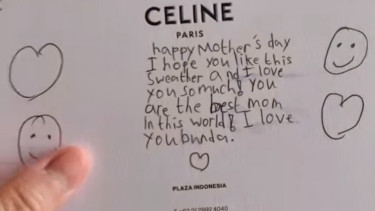 CELINE
PARIS
happy Mother's day
I hope you like this
Sweather and I love
you so much! you
are the best mom
In this world! I love
you bunda.
PLAZA INDONESIA